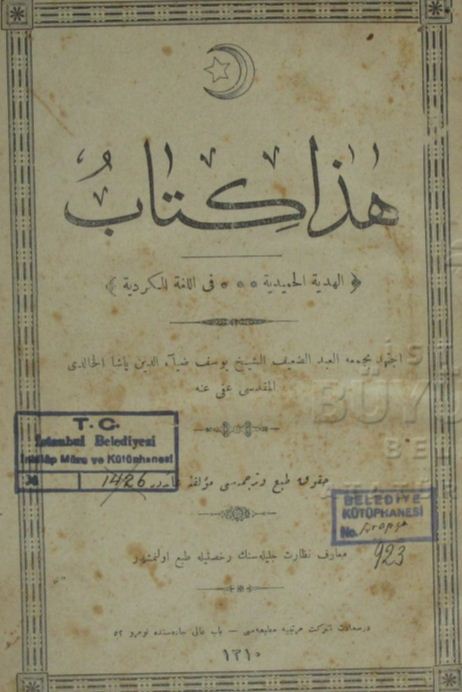 هذا كتاب
﴿ الهدية الحميدية ٥٥٥ فى اللغة الكردية ﴾
اجتهد بجمعه العبد الضعيف الشيخ يوسف ضياء الدين پاشا الخالدى
المقدسى عفى عنه
T. C.
İstanbul Belediyesi
İnkılâp Müze ve Kütüphanesi
1426
حقوق طبع وترجمه‌سى مؤلفنه عائددر
BELEDİYE
KÜTÜPHANESİ
No.
923
معارف نظارت جليله‌سنك رخصتيله طبع اولنمشدر
درسعادت شركت مرتبيه مطبعه‌سى — باب عالى جاده‌سنده نومرو ٥٢
١٣١٠
BÜYÜ
BEL